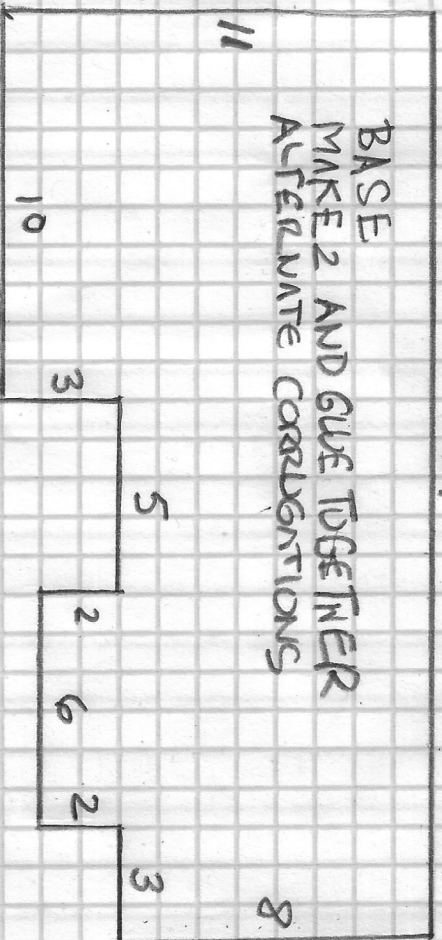 BASE
MAKE 2 AND GLUE TOGETHER
ALTERNATE CORRUGATIONS
11
10
3
5
2
6
2
3
8